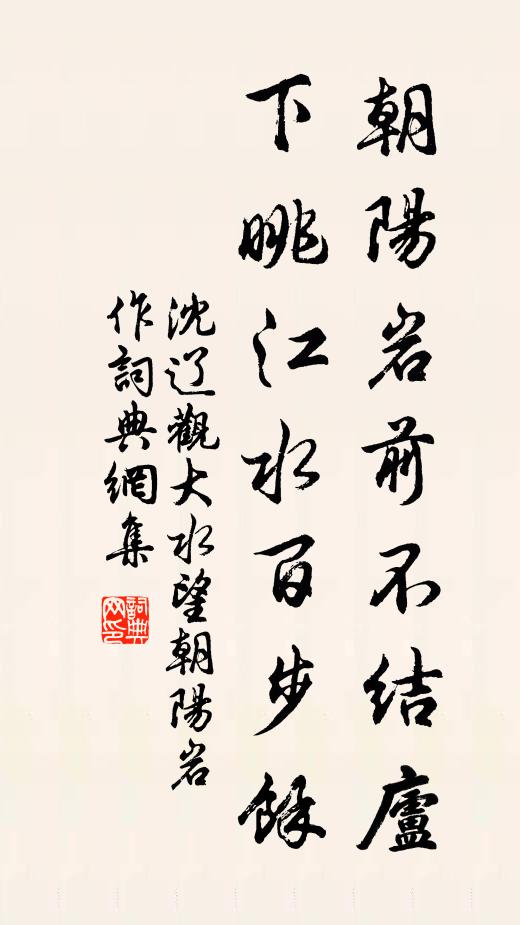 朝陽岩前不結廬
下眺江水百步餘
沈辽觀大水望朝陽岩
作詞典網集
詞典網印